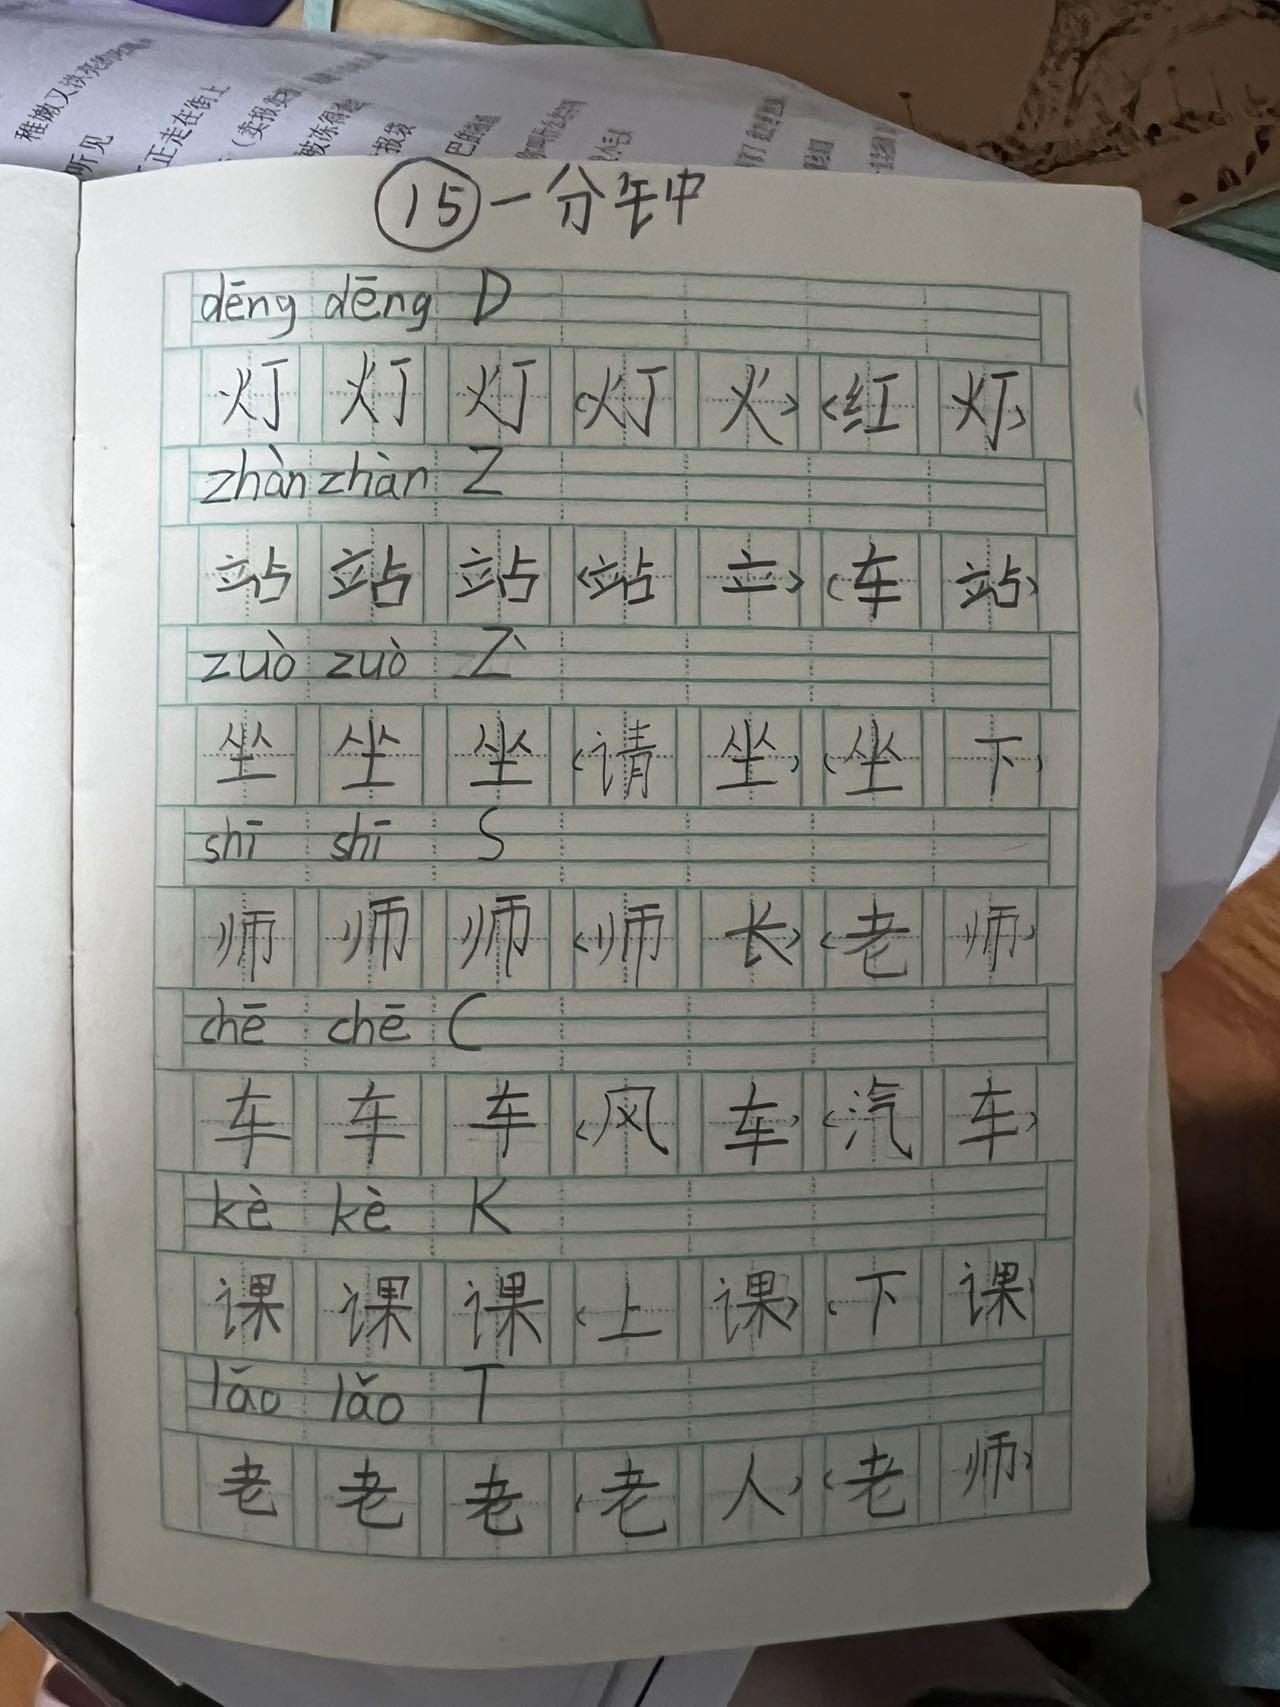 稚嫩又漂亮的
听见
正走在街上
(卖报
被冻得
报袋
⑮一分钟
dēng dēng D
灯 灯 灯 (灯 火) (红 灯)
zhàn zhàn Z
站 站 站 (站 立) (车 站)
zuò zuò Z
坐 坐 坐 (请 坐) (坐 下)
shī shī S
师 师 师 (师 长) (老 师)
chē chē C
车 车 车 (风 车) (汽 车)
kè kè K
课 课 课 (上 课) (下 课
lǎo lǎo T
老 老 老 (老 人) (老 师)